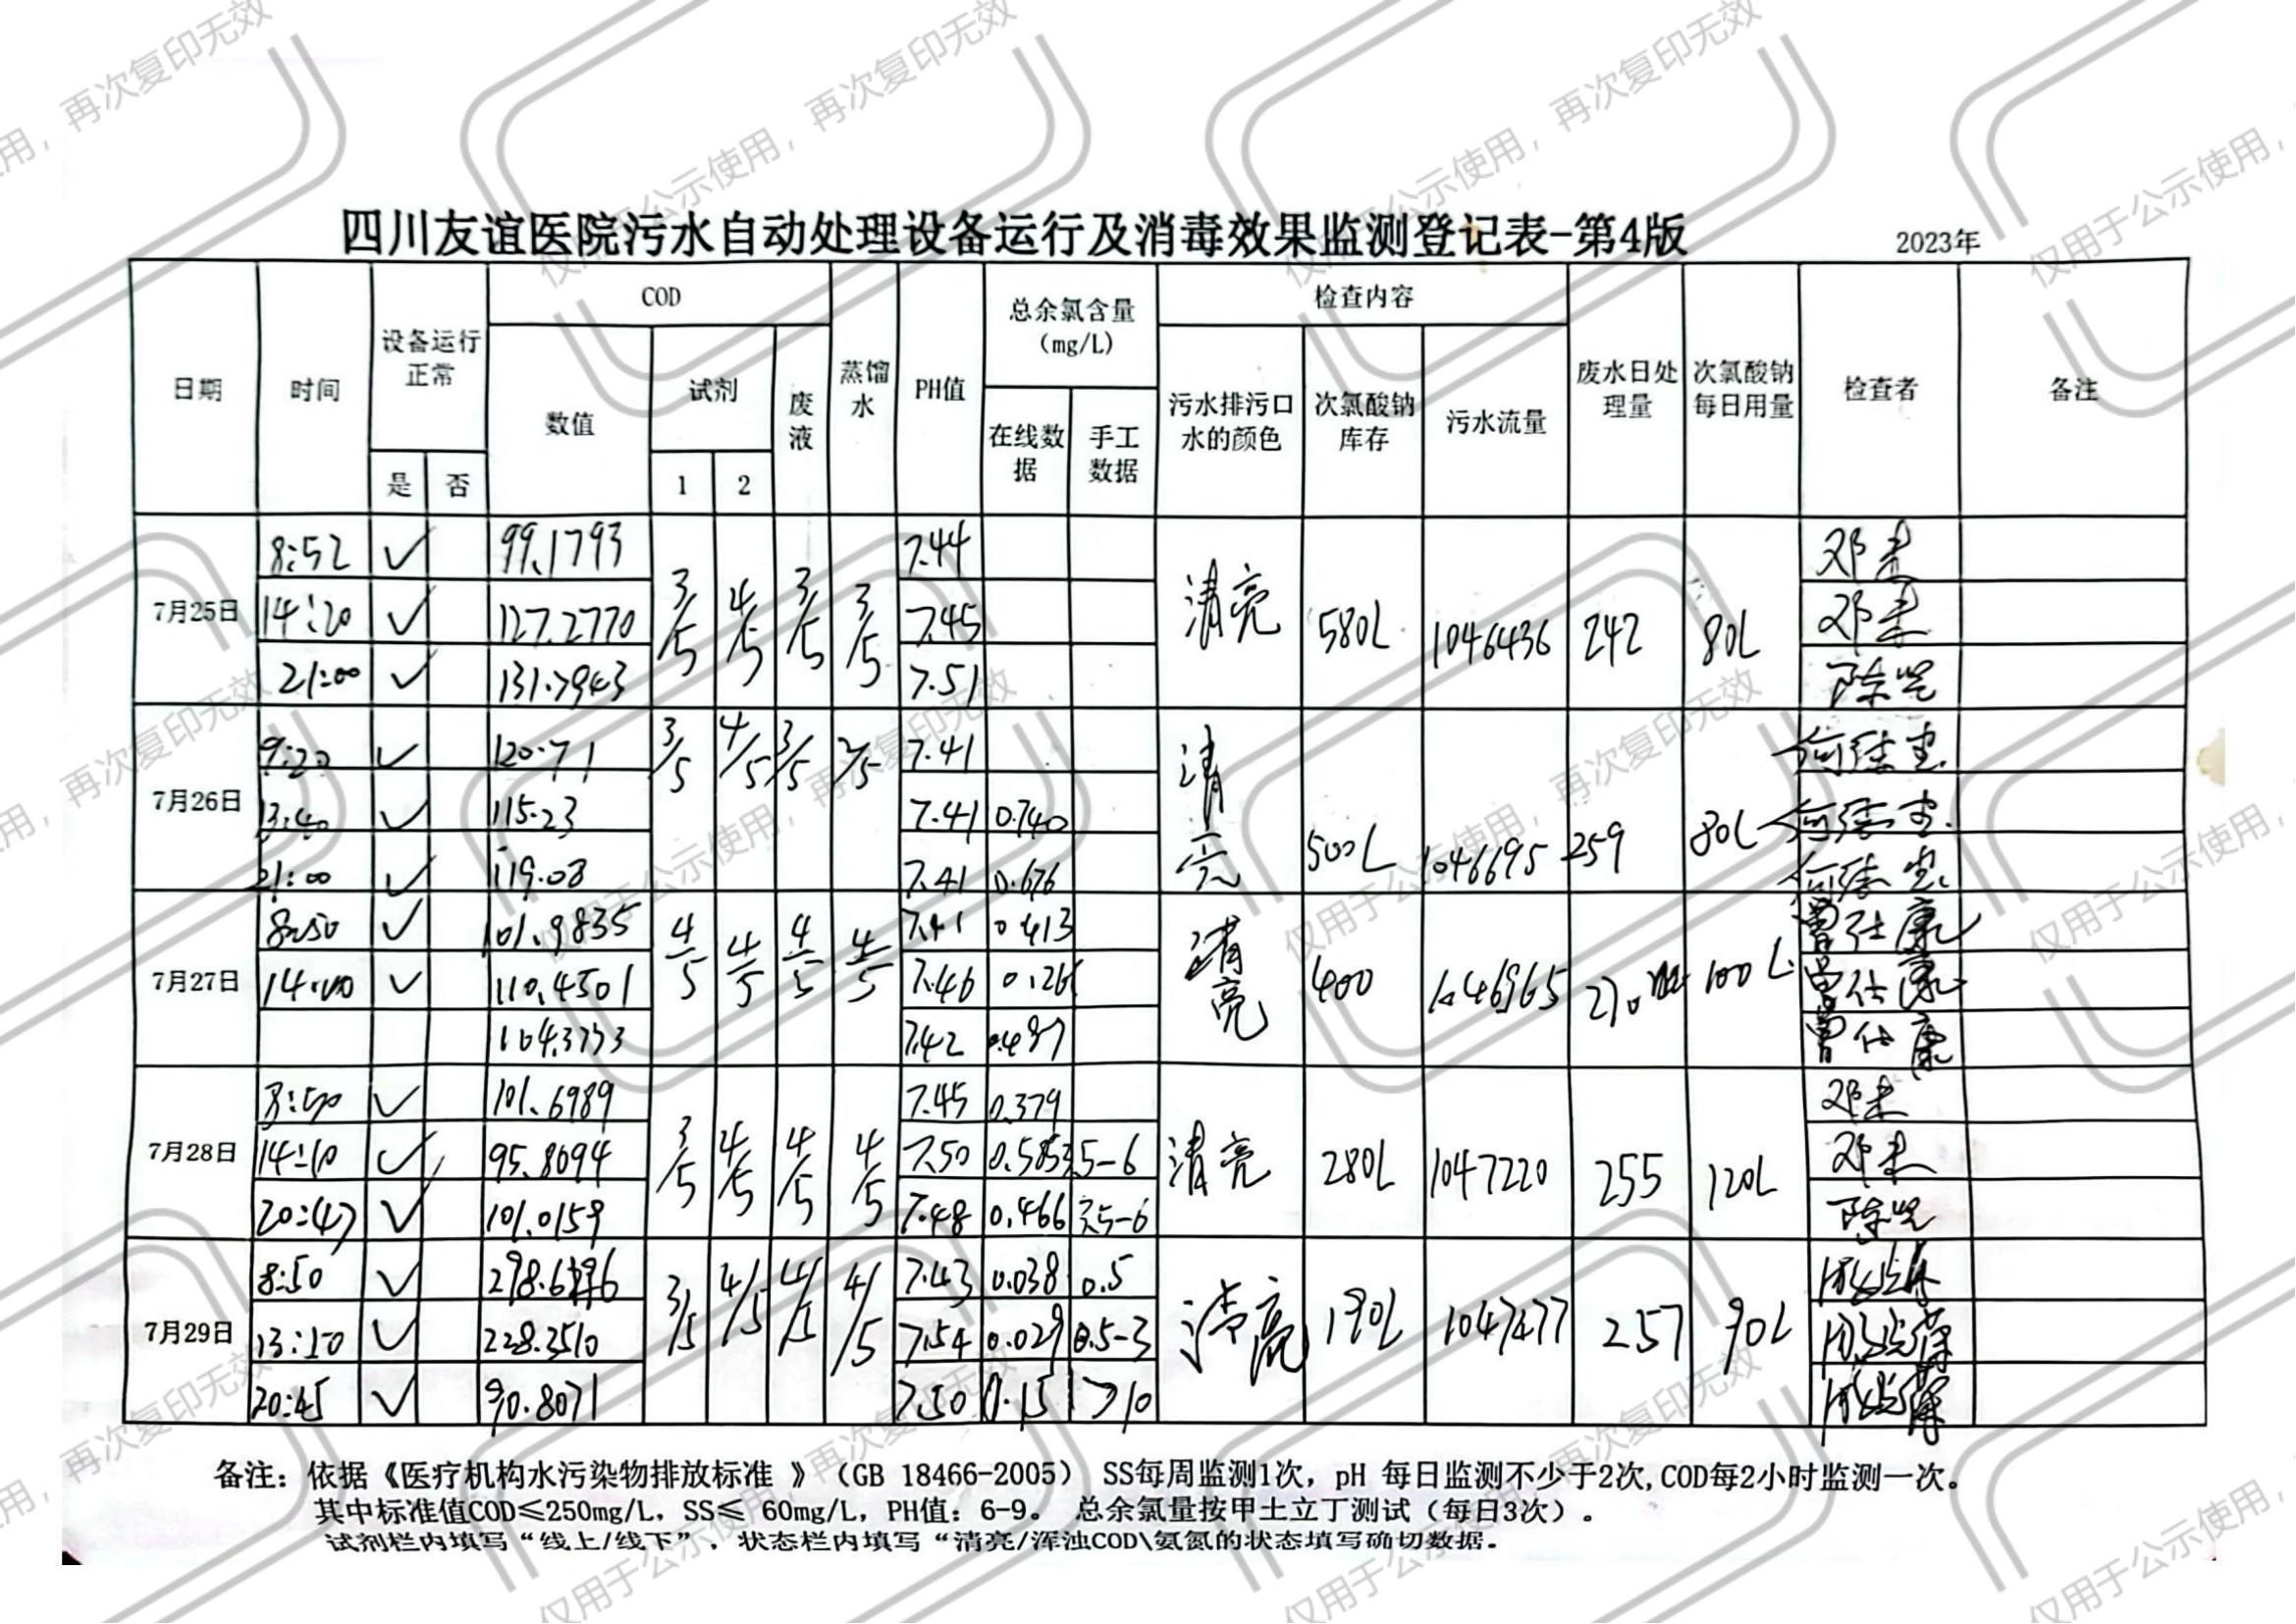 四川友谊医院污水自动处理设备运行及消毒效果监测登记表-第4版
2023年
日期 时间 设备运行正常 COD 蒸馏水 PH值 总余氯含量(mg/L) 检查内容 废水日处理量 次氯酸钠每日用量 检查者 备注
数值 试剂 废液 在线数据 手工数据 污水排污口水的颜色 次氯酸钠库存 污水流量
是 否 1 2
7月25日 8:52 ✓ 99.1793 3/5 4/5 3/5 3/5 7.44 清亮 580L 1046436 242 80L 邓
14:20 ✓ 127.2770 7.45 邓
21:00 ✓ 131.7943 7.51 陈
7月26日 9:20 ✓ 120.71 3/5 4/5 3/5 7.41 清亮 500L 1046695 259 80L 何
13:40 ✓ 115.23 7.41 0.740 何
21:00 ✓ 119.08 7.41 0.676 何
7月27日 8:50 ✓ 101.9835 4/5 4/5 4/5 4/5 7.41 0.413 清亮 400 1046965 270 100L 曾仕康
14:00 ✓ 110.4501 7.46 0.126 曾仕康
104.3733 7.42 曾仕康
7月28日 8:50 ✓ 101.6989 3/5 4/5 4/5 4/5 7.45 0.379 清亮 280L 1047220 255 120L 邓
14:10 ✓ 95.8694 7.50 0.585 5-6 邓
20:47 ✓ 101.0159 7.48 0.466 5-6 陈
7月29日 8:50 ✓ 3/5 4/5 4/5 4/5 7.43 0.038 0.5 清亮 190L 1047477 257 90L
13:50 ✓ 228.3510 7.54 0.029 0.5-3
20:45 ✓ 90.8071 7.50 0.15 >10
备注：依据《医疗机构水污染物排放标准 》（GB 18466-2005） SS每周监测1次，pH 每日监测不少于2次,COD每2小时监测一次。
其中标准值COD≤250mg/L，SS≤ 60mg/L，PH值：6-9。 总余氯量按甲土立丁测试（每日3次）。
试剂栏内填写“线上/线下”，状态栏内填写“清亮/浑浊COD\氨氮的状态填写确切数据。
仅用于公示使用，再次复印无效